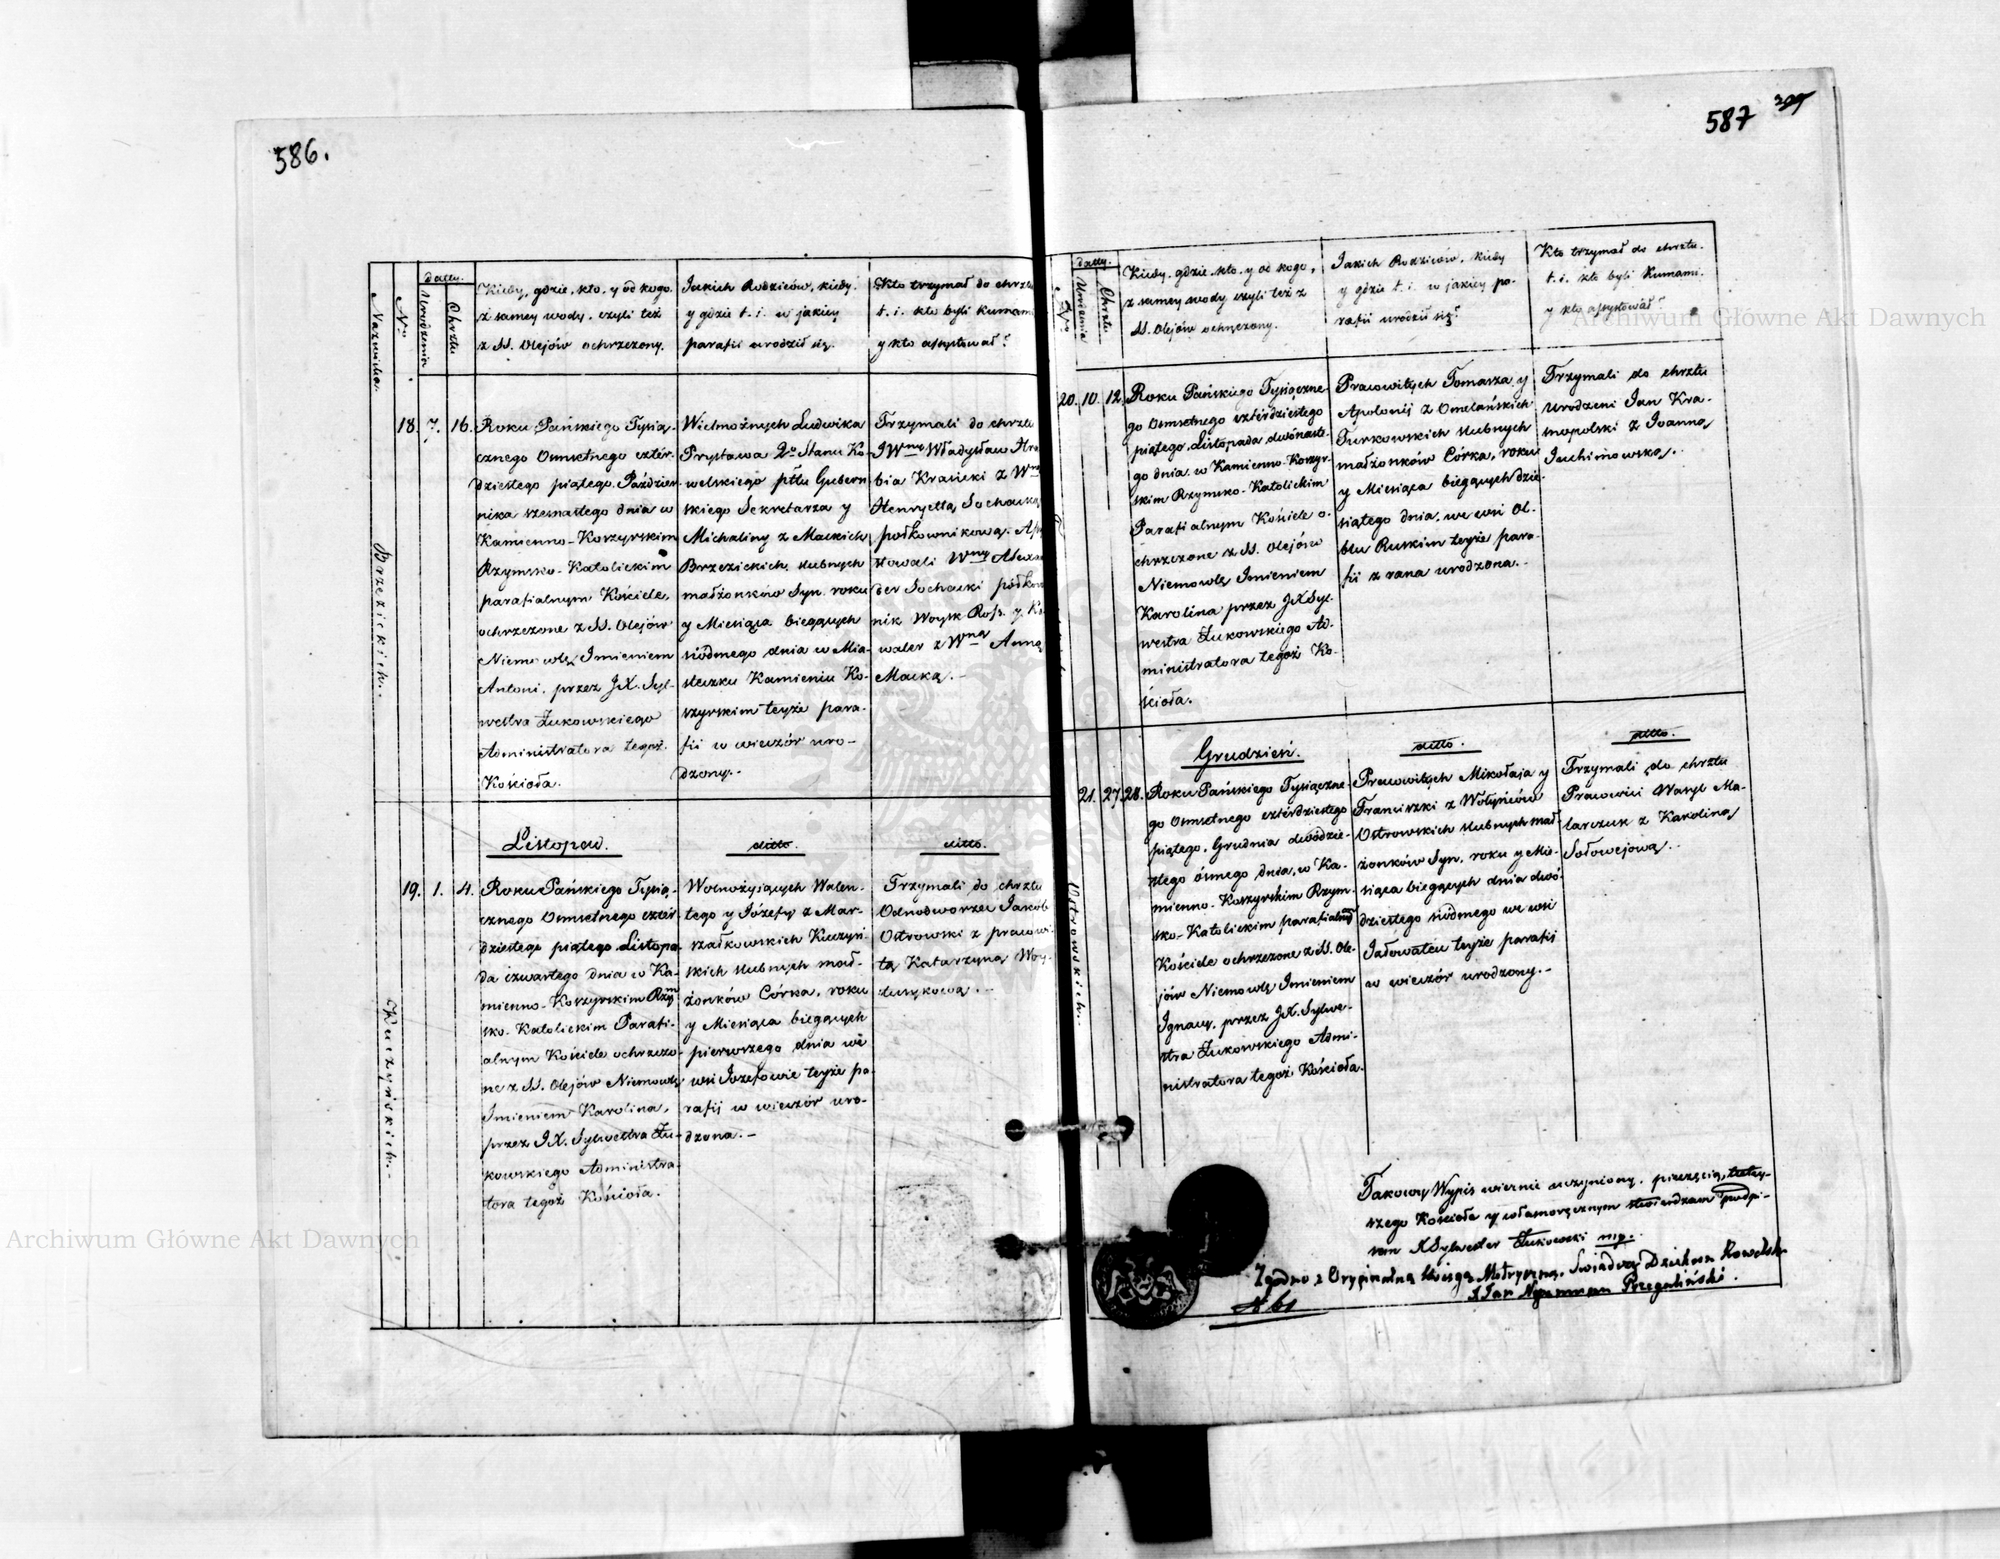 586.
Nazwiska.
No
datta.
Urodzenia
Chrztu
Kiedy, gdzie, kto, y od kogo
z samey wody, czyli też
z SS. Olejów ochrzczony.
Jakich Rodziców, kiedy
y gdzie t. i. w jakiey
parafii urodził się.
Kto trzymał do chrztu
t. i. kto byli kumami
y kto assystował?
Brzezickich.
18.
7.
16.
Roku Pańskiego Tysią-
cznego Ośmsetnego czter-
dziestego piątego Paździer-
nika szesnastego dnia w
Kamienno-Koszyrskim
Rzymsko-Katolickim
parafialnym Kościele,
ochrzczone z SS. Olejów
Niemowlę Imieniem
Antoni, przez JX. Syl-
westra Żukowskiego
Administratora tegoż
Kościoła.
Wielmożnych Ludwika
Prystawa 2o Stanu Ko-
welskiego pttu Gubern
skiego Sekretarza y
Michaliny z Mackich
Brzezickich, slubnych
małżonków Syn, roku
y Miesiąca bieggcych
siódmego dnia w Mia-
steczku Kamieniu Ko-
szyrskim teyże para-
fii w wieczór uro-
dzony.-
Trzymali do chrztu
JWny Władysław Hra
bia Krasicki z Wną
Henryettą Sochacką
połkownikową. Assy
stowali Wny Alexan
der Sochacki półkow
nik Woysk Ross. y Ka
waler z Wną Anną
Macką.-
Listopad.
ditto.
ditto.
Kuczyńskich.-
19.
1.
4.
Roku Pańskiego Tysią-
cznego Ośmsetnego czter
dziestego piątego Listopa-
da czwartego dnia w Ka-
mienno-Koszyrskim Rzym
sko-Katolickim Parafi-
alnym Kościele ochrzczo-
ne z SS. Olejów Niemowlę
Imieniem Karolina,
przez JX. Sylwestra Żu-
kowskiego Administra-
tora tegoż Kościoła.
Wolnożyiących Walen-
tego y Józefy z Mar-
szałkowskich Kuczyń-
skich slubnych mał-
żonków Córka, roku
y Miesiąca bieggcych
pierwszego dnia we
wsi Józefowie teyże pa-
rafij w wieczór uro-
dzona.-
Trzymali do chrztu
Odnodworzec Jakób
Ostrowski z pracowi-
tą Katarzyną Woy-
587
datty.
No
Urodzenia
Chrztu
Kiedy, gdzie, kto, y od kogo,
z samey wody czyli też z
SS. Olejów ochrzczony.
Jakich Rodziców, kiedy
y gdzie t. i. w jakiey pa-
rafii urodził się?
Kto trzymał do chrztu.
t. i. kto byli Kumami.
y kto assystował?
20.
10.
12.
Roku Pańskiego Tysiączne-
go Ośmsetnego czterdziestego
piątego, Listopada dwónaste-
go dnia, w Kamienno-Koszyr-
skim Rzymsko-Katolickim
Parafialnym Kościele o-
chrzczone z SS. Olejów
Niemowlę Imieniem
Karolina przez JX Syl-
westra Żukowskiego Ad-
ministratora tegoż Ko-
ścioła.
Pracowitych Tomasza y
Apolonij z Omelańskich
Turkowskich slubnych
małżonków Córka, roku
y Miesiąca bieggcych dzie-
siątego dnia, we wsi Ol-
blu Ruskim teyże para-
fii z rana urodzona.-
Trzymali do chrztu
Urodzeni Jan Kra-
snopolski z Joanną
Juchimowską.-
Grudzień.
ditto.
ditto.
Ostrowskich.
21.
27.
28.
Roku Pańskiego Tysiączne-
go Ośmsetnego czterdziestego
piątego, Grudnia dwódzie-
stego ósmego dnia, w Ka-
mienno-Koszyrskim Rzym-
sko-Katolickim parafialnym
Kościele ochrzczone z SS. Ole-
jów Niemowlę Imieniem
Ignacy, przez JX. Sylwe-
stra Żukowskiego Admi-
nistratora tegoż Kościoła.
Pracowitych Mikołaja y
Franciszki z Wołyńców
Ostrowskich slubnych mał
żonków Syn, roku y Mie-
siąca bieggcych dnia dwó-
dziestego siódmego we wsi
Jałowateu teyże parafij
w wieczór urodzony.-
Trzymali do chrztu
Pracowici Wasyl Ma-
larczuk z Karoliną
Sołowejową.-
Takowy Wypis wiernie uczyniony, pieczęcią tutey-
szego Kościoła y własnoręcznym stwierdzam podpi-
sem X Sylwester Żukowski mp.
Zgodno z Oryginalną Księgą Metryczną. Świadczę Dziekan Kowelski
X Jan Nepomucen Przegaliński.
N 61
Archiwum Główne Akt Dawnych
Archiwum Główne Akt Dawnych